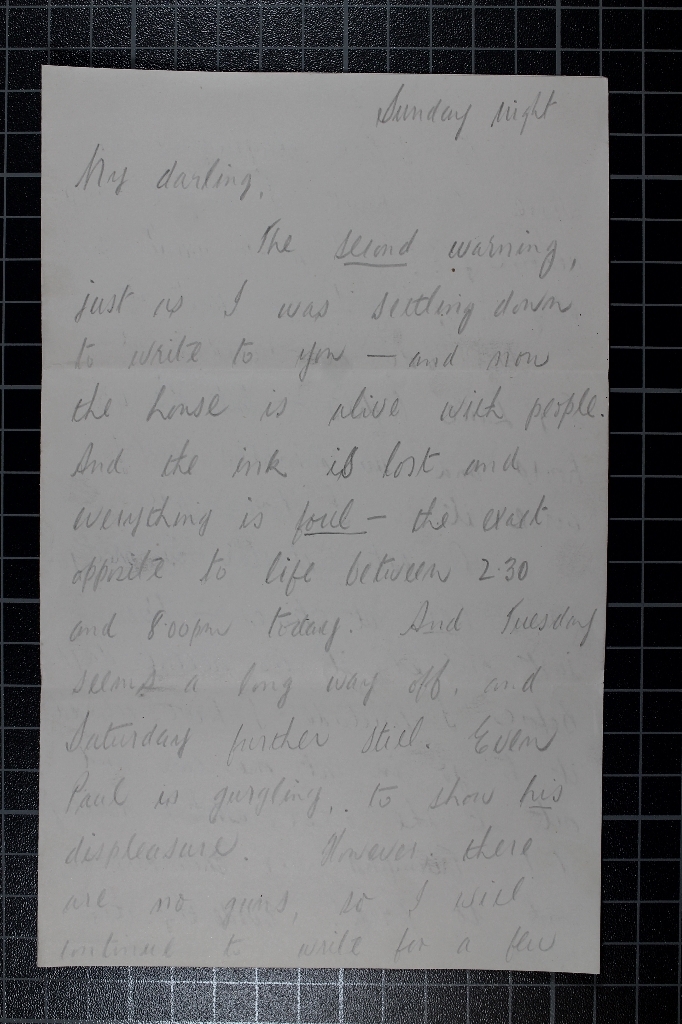 Sunday night
My darling,
The second warning,
just as I was settling down
to write to you — and now
the house is alive with people.
And the ink is lost and
everything is foul — the exact
opposite to life between 2.30
and 8.00pm today. And Tuesday
seems a long way off, and
Saturday further still. Even
Paul is gurgling, to show his
displeasure. However there
are no guns, so I will
continue to write for a few